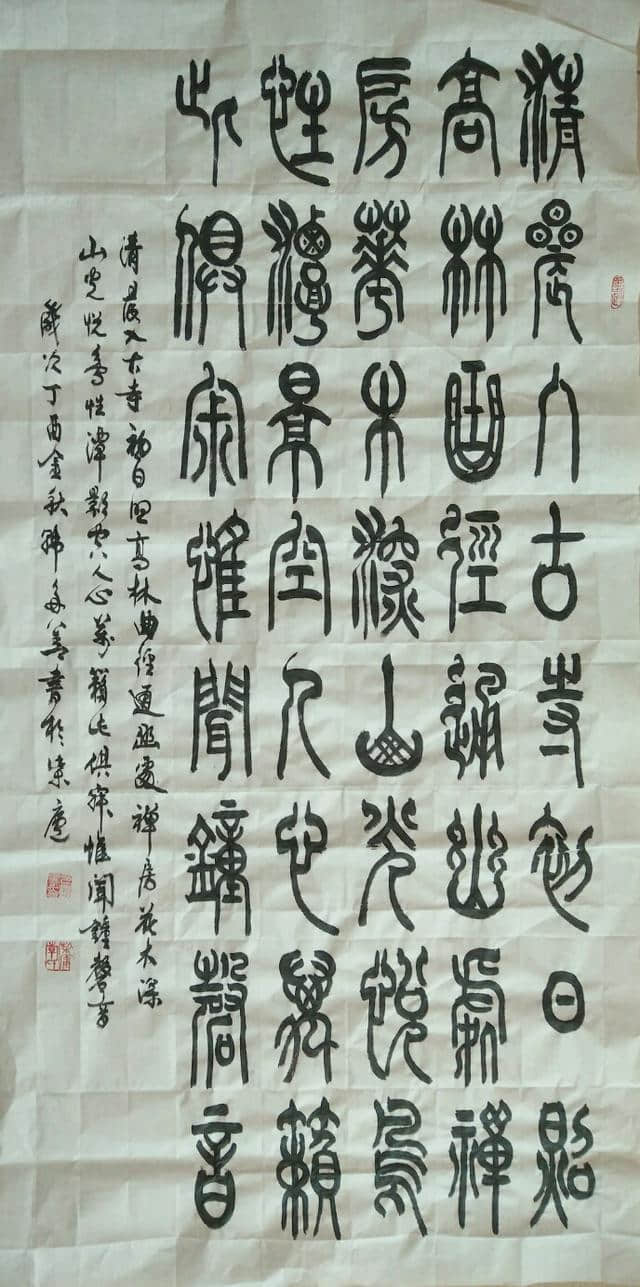 清晨入古寺初日照
高林曲徑通幽處禪
房華木深山光悅鳥
性潭景空人心萬籟
此俱寂惟聞鐘磬音
清晨入古寺初日照高林曲徑通幽處禪房花木深
山光悅鳥性潭影空人心萬籟此俱寂惟聞鐘磬音
歲次丁酉金秋書於